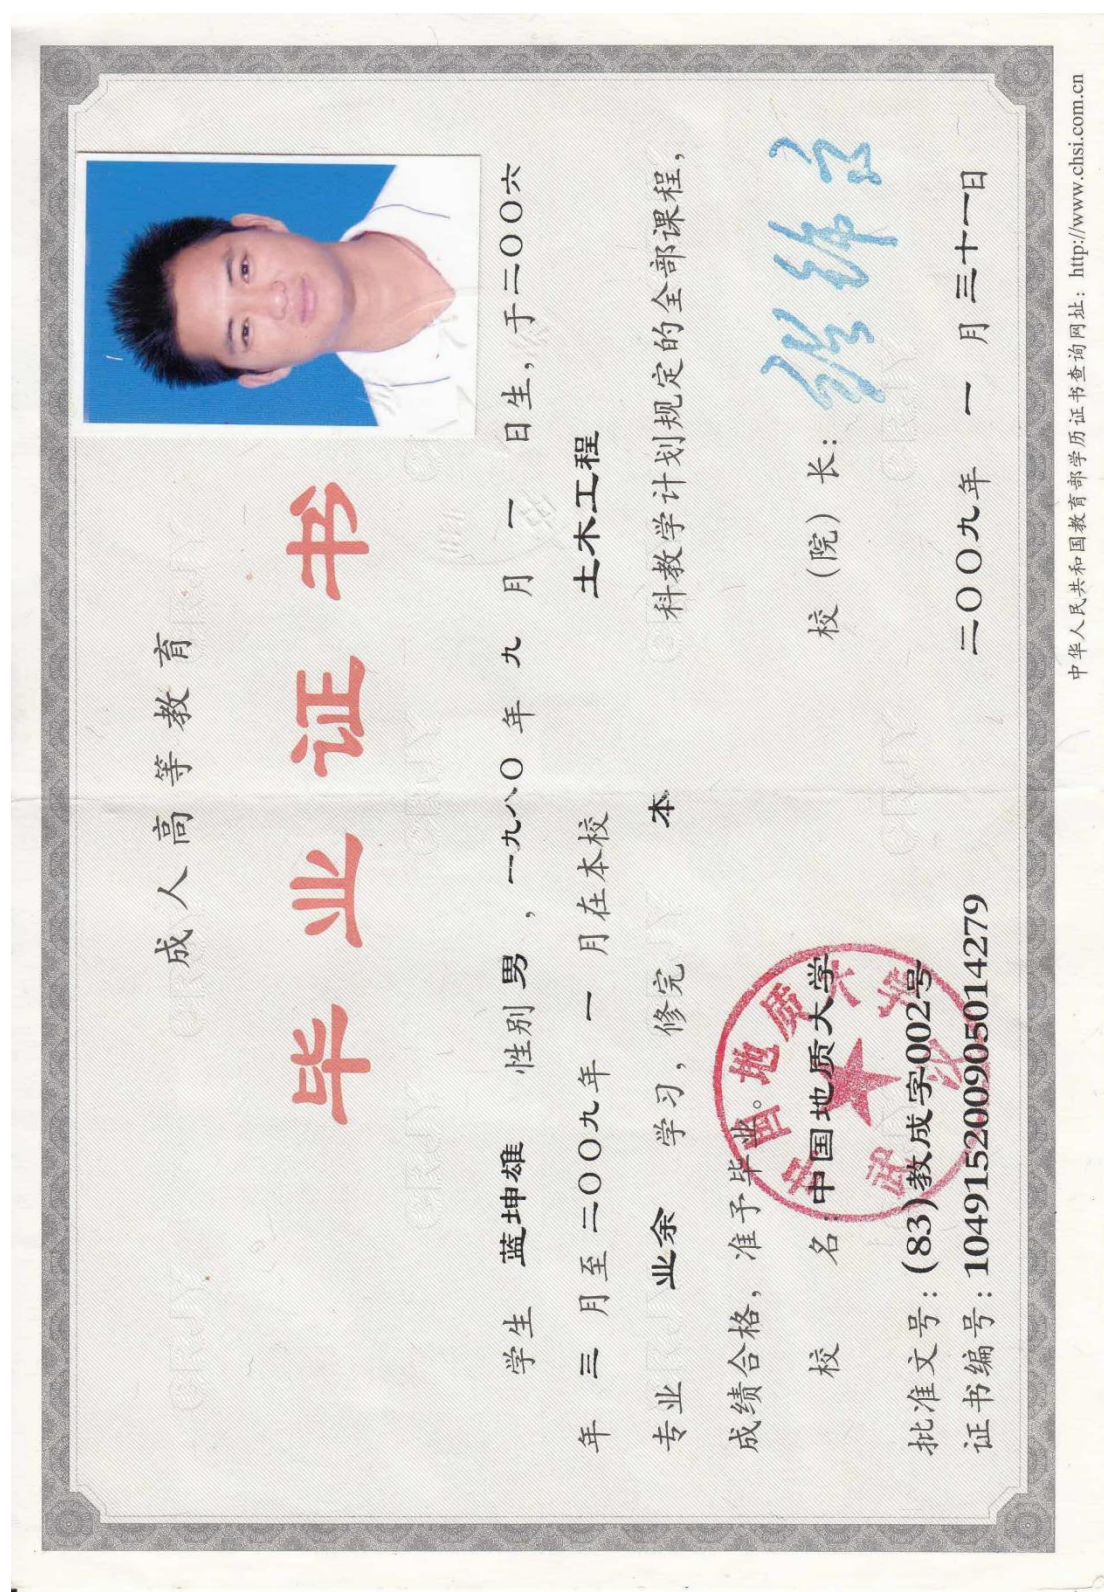 成人高等教育
毕业证书
学生 蓝坤雄 性别 男 ，一九八〇 年 九 月 一 日生，于二〇〇六
年 三 月至 二〇〇九年 一 月在本校 土木工程
专业 业余 学习，修完 本 科教学计划规定的全部课程，
成绩合格，准予毕业。
校 名：中国地质大学 校（院）长：
批准文号：(83)教成字002号
证书编号：104915200905014279 二〇〇九年 一 月 三十一日
中国地质大学
武汉
CRJY
中华人民共和国教育部学历证书查询网址：http://www.chsi.com.cn